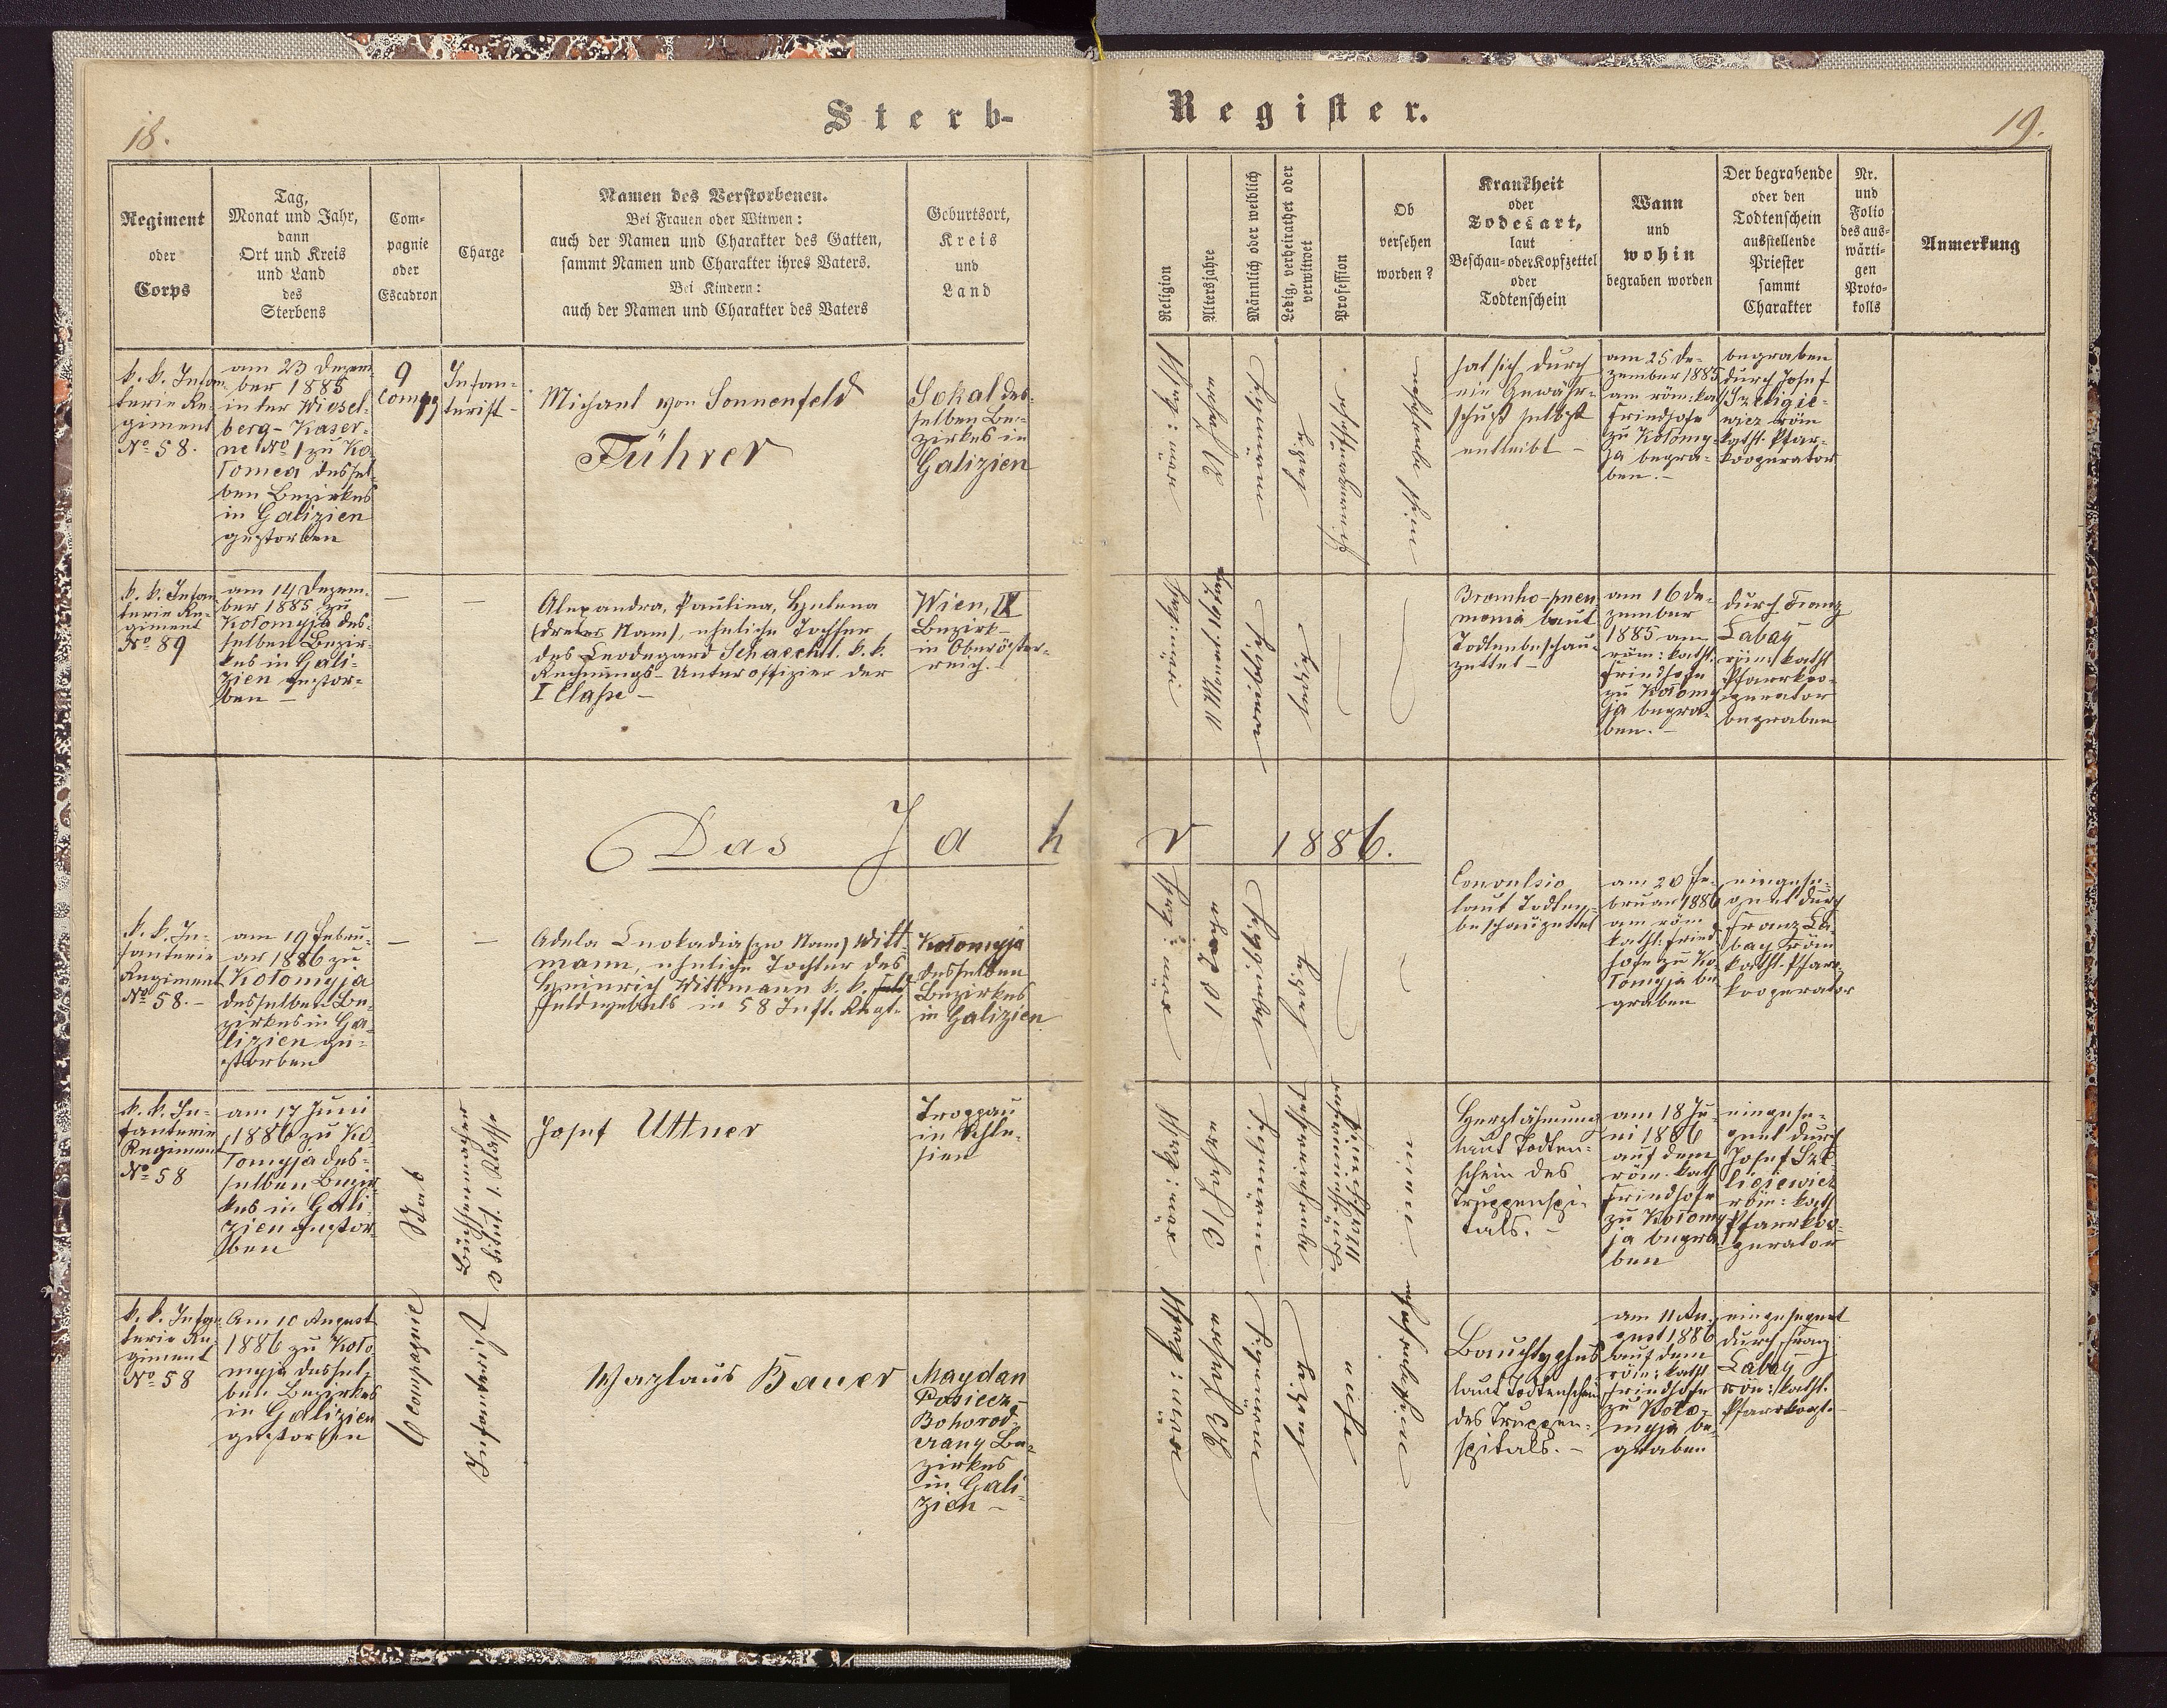 18.
Sterb-
Register.
19.
Regiment
oder
Corps
Tag,
Monat und Jahr,
dann
Ort und Kreis
und Land
des
Sterbens
Com-
pagnie
oder
Escadron
Charge
Namen des Verstorbenen.
Bei Frauen oder Witwen:
auch der Namen und Charakter des Gatten,
sammt Namen und Charakter ihres Vaters.
Bei Kindern:
auch der Namen und Charakter des Vaters
Geburtsort,
Kreis
und
Land
Religion
Altersjahre
Männlich oder weiblich
Ledig, verheirathet oder
verwitwet
Profession
Ob
versehen
worden?
Krankheit
oder
Todesart,
laut
Beschau- oder Kopfzettel
oder
Todtenschein
Wann
und
wohin
begraben worden
Der begrabende
oder den
Todtenschein
ausstellende
Priester
sammt
Charakter
Nr.
und
Folio
des aus-
wärti-
gen
Proto-
kolls
Anmerkung
k. k. Infan-
terie Re-
giment
No 58.
am 23 Dezem
ber 1885
in der Wiesel-
berg-Kaser-
ne No 1 zu Ko-
lomea dessel-
ben Bezirkes
in Galizien
gestorben
9
Comp
Infan-
terist
Michael von Sonnenfeld
Führer
Sokal des-
selben Be-
zirkes in
Galizien
ledig
hat sich durch
ein Gewehr-
schuß selbst
entleibt -
am 25 De-
zember 1885
am röm: kath
Friedhofe
zu Kołomy-
ja begra-
ben. -
begraben
durch Josef
Szeligie-
wicz röm
kath. Pfar-
kooperator
k. k. Infan
terie Re-
giment
No 89
am 14 Dezem-
ber 1885 zu
Kołomyja des-
selben Bezir-
kes in Gali-
zien gestor-
ben -
-
-
Alexandra, Paulina, Helena
(dreier Nam), eheliche Tochter
des Leodegard Schaechtl. k. k.
Rechnungs-Unteroffizier der
I Classe -
Wien, IX
Bezirk
in Oberöster-
reich. -
11 Monate
weiblich
ledig
Broncho-pneu
monia laut
Todtenbeschau-
zettel -
am 16 De-
zember
1885 am
röm: kath.
Friedhofe
zu Kołomy
ja begra-
ben. -
durch Franz
Łabay
röm kath
Pfarrkoo-
perator
begraben
Das Jahr 1886.
k. k. In-
fanterie
Regiment
No 58. -
am 19 Febru-
ar 1886 zu
Kołomyja
desselben Be-
zirkes in Ga-
lizien ge-
storben
-
-
Adela Leokadia (zw Nam) Witt
mann, eheliche Tochter des
Heinrich Wittmann k. k.
Feldwebels in 58 Inft. Regt.
Kołomyja
desselben
Bezirkes
in Galizien
ledig
Convulsio
laut Todten-
beschauzettel
am 20 Fe-
bruar 1886
am röm
kath: Fried
hofe zu Ko-
łomyja be
graben
eingese-
gnet durch
Franz Ła-
bay röm
kath. Pfarr
kooperator
k. k. In-
fanterie
Regiment
No 58
am 17 Juni
1886 zu Ko-
łomyja des-
selben Bezir-
kes in Gali-
zien gestor
ben
Stab
Büchsenmacher
1. Klasse
Josef Uttner
Troppau
in Schle-
sien
Herzlähmung
laut Todten-
schein des
Truppenspi-
tals. -
am 18 Ju-
ni 1886
auf dem
röm. kath
Friedhofe
zu Kołomy
ja begra
ben
eingese-
gnet durch
Josef Sze
ligiewicz
röm: kath
Pfarrkoo-
perator
k. k. Infan
terie Re-
giment
No 58
Am 10 August
1886 zu Koło
myja dessel-
ben Bezirkes
in Galizien
gestorben
Compagnie
Infanterist
Wazlaus Bauer
Maydan
Posiecz
Bohorod-
czany Be-
zirkes
in Gali-
zien -
23 Jahre
ledig
Bauchtyphus
laut Todtenschein
des Truppen-
spitals. -
am 11 Au-
gust 1886
auf dem
röm: kath
Friedhofe
zu Koło-
myja be-
graben
eingesegnet
durch Franz
Łabay
röm: kath.